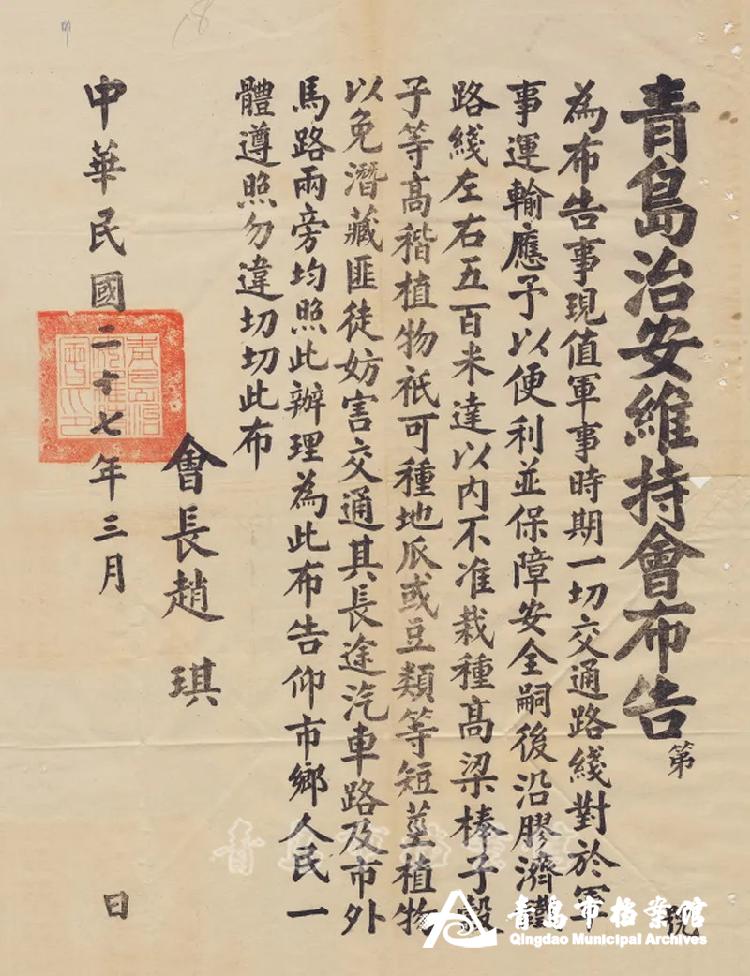 青島治安維持會布告 第 號
為布告事現值軍事時期一切交通路綫對於軍
事運輸應予以便利並保障安全嗣後沿膠濟鐵
路綫左右五百米達以內不准栽種高粱榛子穀
子等高稭植物衹可種地瓜或豆類等短莖植物
以免潛藏匪徒妨害交通其長途汽車路及市外
馬路兩旁均照此辦理為此布告仰市鄉人民一
體遵照勿違切切此布
會長趙琪
中華民國二十七年三月 日
18
青島市档案馆
Qingdao Municipal Archives